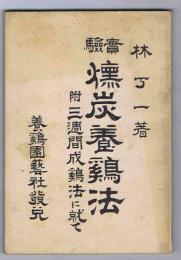 林丁一著
實驗
燻炭養鷄法
附三週間成鷄法に就て
養鷄園藝社發兌